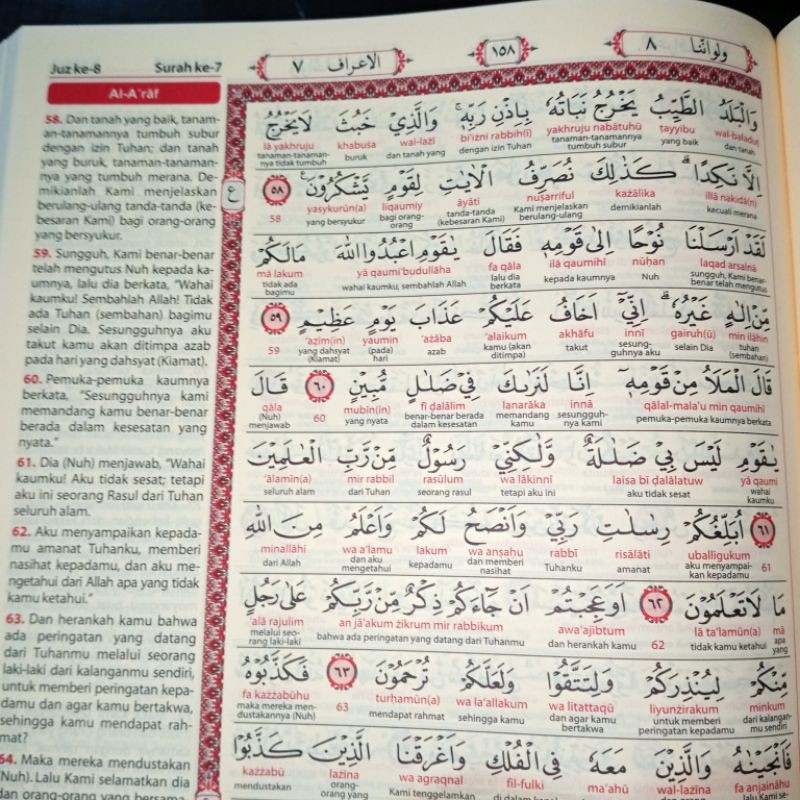 Juz ke-8 Surah ke-7
الأعراف ٧
١٥٨
ولواننا ٨
Al-A'rāf
58. Dan tanah yang baik, tanam-
an-tanamannya tumbuh subur
dengan izin Tuhan; dan tanah
yang buruk, tanaman-tanaman-
nya yang tumbuh merana. De-
mikianlah Kami menjelaskan
berulang-ulang tanda-tanda (ke-
besaran Kami) bagi orang-orang
yang bersyukur.
59. Sungguh, Kami benar-benar
telah mengutus Nuh kepada ka-
umnya, lalu dia berkata, "Wahai
kaumku! Sembahlah Allah! Tidak
ada Tuhan (sembahan) bagimu
selain Dia. Sesungguhnya aku
takut kamu akan ditimpa azab
pada hari yang dahsyat (Kiamat).
60. Pemuka-pemuka kaumnya
berkata, "Sesungguhnya kami
memandang kamu benar-benar
berada dalam kesesatan yang
nyata."
61. Dia (Nuh) menjawab, "Wahai
kaumku! Aku tidak sesat; tetapi
aku ini seorang Rasul dari Tuhan
seluruh alam.
62. Aku menyampaikan kepada-
mu amanat Tuhanku, memberi
nasihat kepadamu, dan aku me-
ngetahui dari Allah apa yang tidak
kamu ketahui."
63. Dan herankah kamu bahwa
ada peringatan yang datang
dari Tuhanmu melalui seorang
laki-laki dari kalanganmu sendiri,
untuk memberi peringatan kepa-
damu dan agar kamu bertakwa,
sehingga kamu mendapat rah-
mat?
64. Maka mereka mendustakan
(Nuh). Lalu Kami selamatkan dia
dan orang-orang yang bersama
ع
وَالْبَلَدُ الطَّيِّبُ يَخْرُجُ نَبَاتُهٗ بِاِذْنِ رَبِّهٖۚ وَالَّذِيْ خَبُثَ لَا يَخْرُجُ
wal-baladuṭ ṭayyibu yakhruju nabātuhū bi'iżni rabbih(ī) wal-lażī khabuṡa lā yakhruju
dan tanah yang baik tanaman-tanamannya tumbuh subur dengan izin Tuhan dan tanah yang buruk tanaman-tanamannya tidak tumbuh
اِلَّا نَكِدًاۗ كَذٰلِكَ نُصَرِّفُ الْاٰيٰتِ لِقَوْمٍ يَّشْكُرُوْنَ ࣖ ٥٨
illā nakidā(n) każālika nuṣarriful āyāti liqaumiy yasykurūn(a) 58
kecuali merana demikianlah Kami menjelaskan berulang-ulang tanda-tanda (kebesaran Kami) bagi orang-orang yang bersyukur
لَقَدْ اَرْسَلْنَا نُوْحًا اِلٰى قَوْمِهٖ فَقَالَ يٰقَوْمِ اعْبُدُوا اللّٰهَ مَا لَكُمْ
laqad arsalnā nūḥan ilā qaumihī fa qāla yā qaumi'budullāha mā lakum
sungguh, Kami benar-benar telah mengutus Nuh kepada kaumnya lalu dia berkata wahai kaumku, sembahlah Allah tidak ada bagimu
مِّنْ اِلٰهٍ غَيْرُهٗۗ اِنِّيْٓ اَخَافُ عَلَيْكُمْ عَذَابَ يَوْمٍ عَظِيْمٍ ٥٩
min ilāhin gairuh(ū) innī akhāfu 'alaikum 'ażāba yaumin 'aẓīm(in) 59
tuhan (sembahan) selain Dia sesungguhnya aku takut kamu (akan ditimpa) azab (pada) hari yang dahsyat (Kiamat)
قَالَ الْمَلَاُ مِنْ قَوْمِهٖٓ اِنَّا لَنَرٰىكَ فِيْ ضَلٰلٍ مُّبِيْنٍ ٦٠ قَالَ
qālal-mala'u min qaumihī innā lanarāka fī ḍalālim mubīn(in) 60 qāla
pemuka-pemuka kaumnya berkata sesungguhnya kami memandang kamu benar-benar berada dalam kesesatan yang nyata (Nuh) menjawab
يٰقَوْمِ لَيْسَ بِيْ ضَلٰلَةٌ وَّلٰكِنِّيْ رَسُوْلٌ مِّنْ رَّبِّ الْعٰلَمِيْنَ
yā qaumi laisa bī ḍalālatuw wa lākinnī rasūlum mir rabbil 'ālamīn(a)
wahai kaumku aku tidak sesat tetapi aku ini seorang rasul dari Tuhan seluruh alam
٦١ اُبَلِّغُكُمْ رِسٰلٰتِ رَبِّيْ وَاَنْصَحُ لَكُمْ وَاَعْلَمُ مِنَ اللّٰهِ
61 uballigukum risālāti rabbī wa anṣaḥu lakum wa a'lamu minallāhi
aku menyampaikan kepadamu amanat Tuhanku dan memberi nasihat kepadamu dan aku mengetahui dari Allah
مَا لَا تَعْلَمُوْنَ ٦٢ اَوَعَجِبْتُمْ اَنْ جَاۤءَكُمْ ذِكْرٌ مِّنْ رَّبِّكُمْ عَلٰى رَجُلٍ
mā lā ta'lamūn(a) 62 awa'ajibtum an jā'akum żikrum mir rabbikum 'alā rajulim
apa yang tidak kamu ketahui dan herankah kamu bahwa ada peringatan yang datang dari Tuhanmu melalui seorang laki-laki
مِّنْكُمْ لِيُنْذِرَكُمْ وَلِتَتَّقُوْا وَلَعَلَّكُمْ تُرْحَمُوْنَ ٦٣ فَكَذَّبُوْهُ
minkum liyunżirakum wa litattaqū wa la'allakum turḥamūn(a) 63 fa każżabūhu
dari kalanganmu sendiri untuk memberi peringatan kepadamu dan agar kamu bertakwa sehingga kamu mendapat rahmat maka mereka mendustakannya (Nuh)
فَاَنْجَيْنٰهُ وَالَّذِيْنَ مَعَهٗ فِى الْفُلْكِ وَاَغْرَقْنَا الَّذِيْنَ كَذَّبُوْا
fa anjaināhu wal-lażīna ma'ahū fil-fulki wa agraqnal lażīna każżabū
orang-orang yang mendustakan